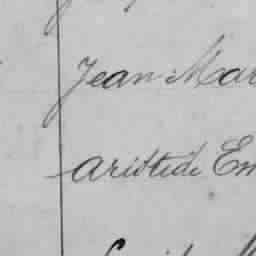 Jean Mar
Aristide Em